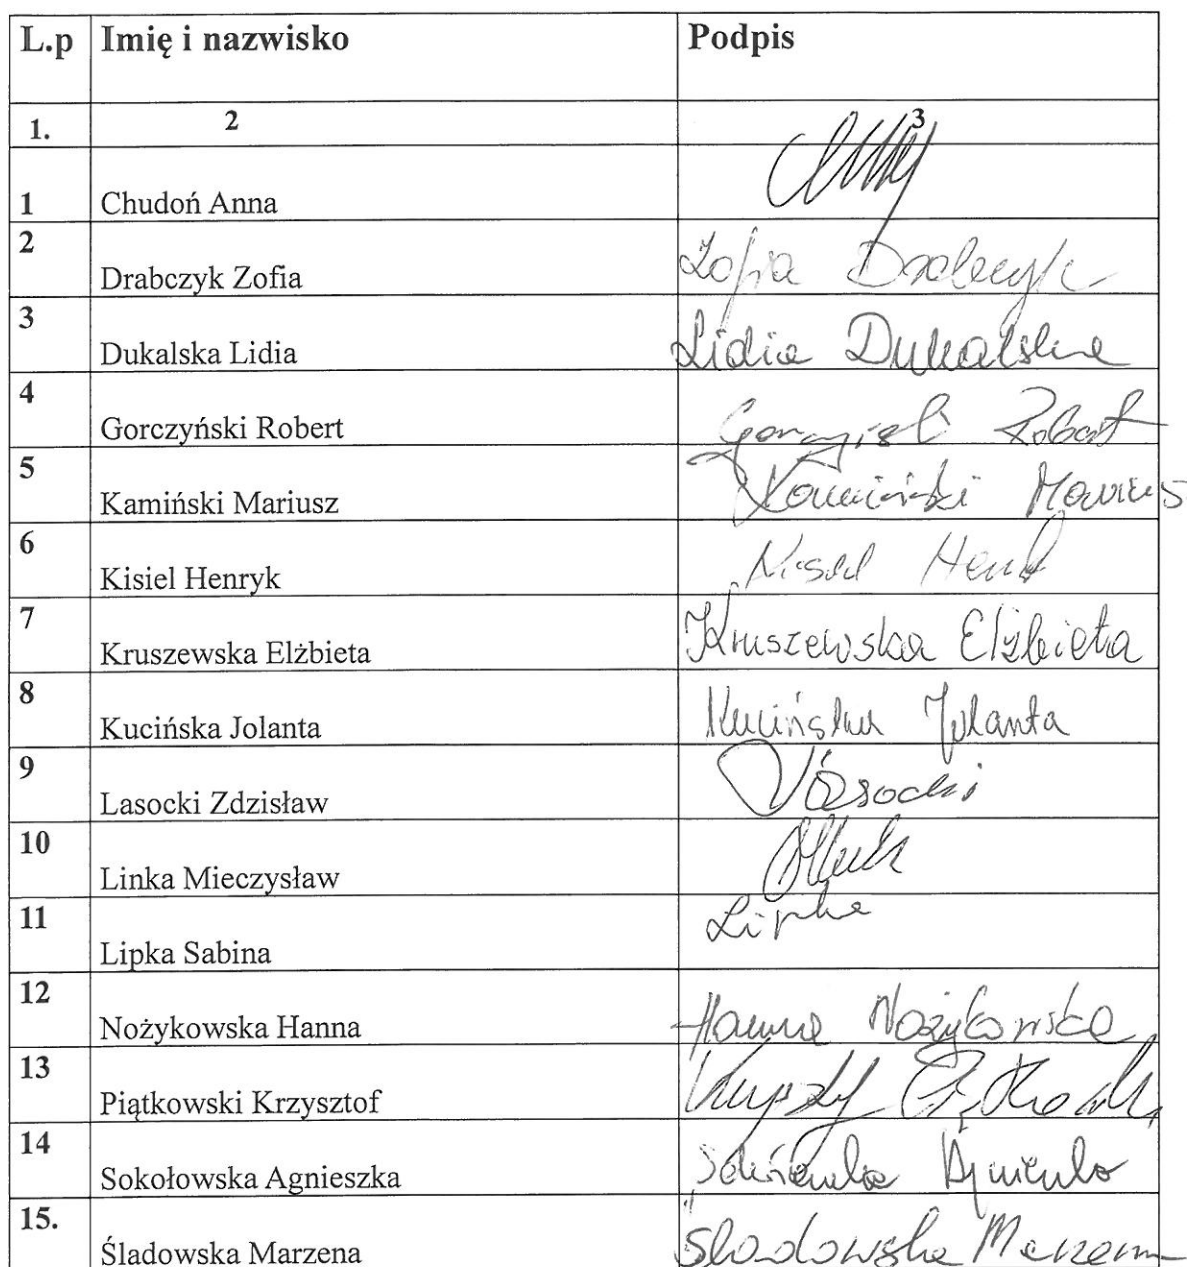 L.p Imię i nazwisko Podpis
1. 2 3
1 Chudoń Anna
2 Drabczyk Zofia Zofia Drabczyk
3 Dukalska Lidia Lidia Dukalska
4 Gorczyński Robert Robert
5 Kamiński Mariusz Kamiński Mariusz
6 Kisiel Henryk Kisiel
7 Kruszewska Elżbieta Kruszewska Elżbieta
8 Kucińska Jolanta Kucińska Jolanta
9 Lasocki Zdzisław
10 Linka Mieczysław
11 Lipka Sabina Lipka
12 Nożykowska Hanna Hanna Nożykowska
13 Piątkowski Krzysztof
14 Sokołowska Agnieszka
15. Śladowska Marzena Śladowska Marzena